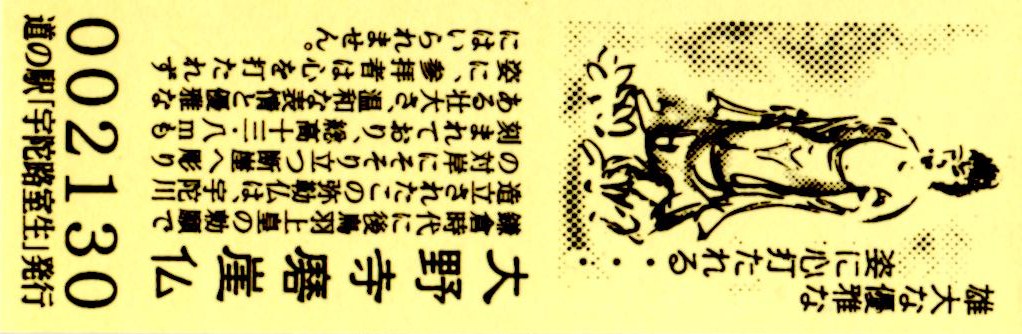 雄大な優雅な
姿に心打たれる・・・・
大野寺磨崖仏
鎌倉時代に後鳥羽上皇の勅願で
造立されたこの弥勒仏は、宇陀川
の対岸にそそり立つ断崖へ彫り
刻まれており、総高十三・八mも
ある壮大さ、温和な表情と優雅な
姿に、参拝者は心を打たれず
にはいられません。
002130
道の駅「宇陀路室生」発行